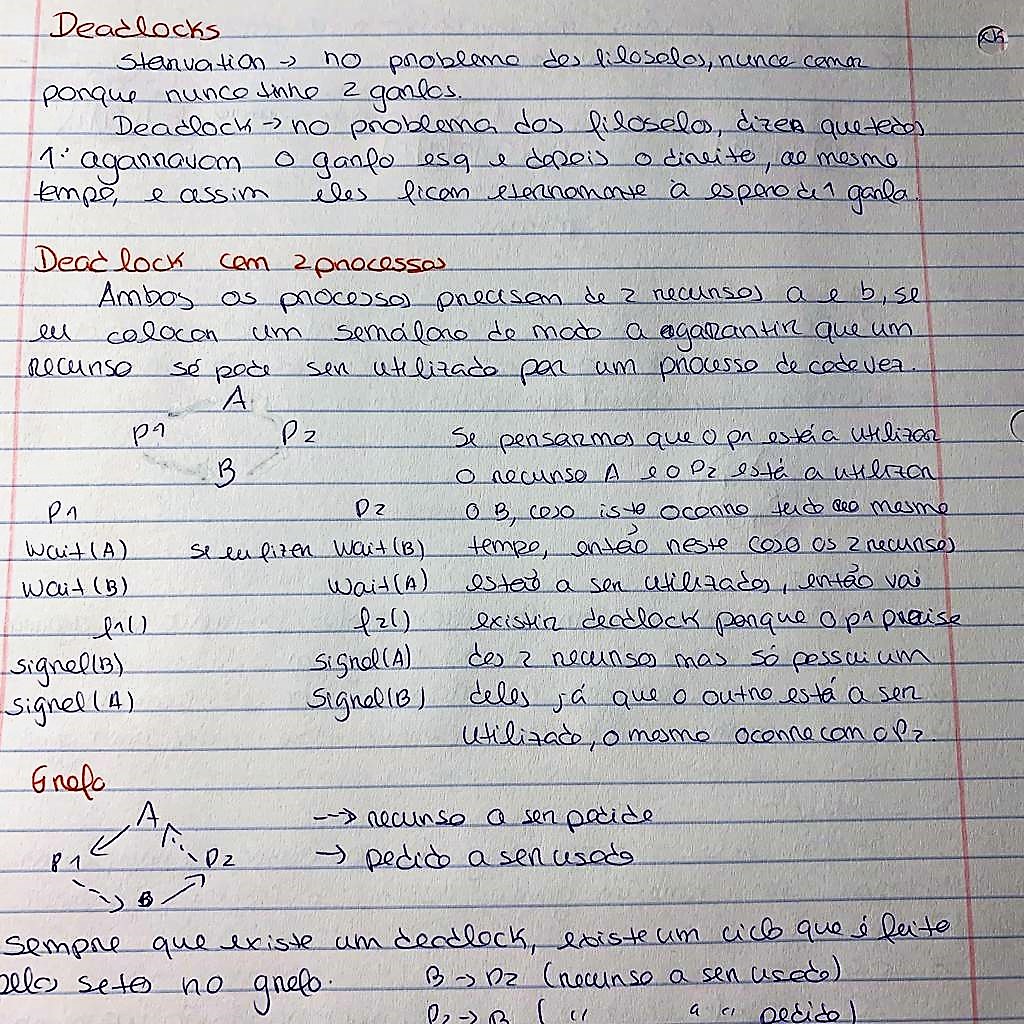 Deadlocks
Starvation → no problema dos filosofos, nunca comer
porque nunca tinha 2 garfos.
Deadlock → no problema dos filosofos, dizer que todos
1º agarravam o garfo esq e depois o direito, ao mesmo
tempo, e assim eles ficam eternamente à espera de 1 garfo.
Deadlock com 2 processos
Ambos os processos precisam de 2 recursos a e b, se
eu colocar um semáforo de modo a garantir que um
recurso só pode ser utilizado por um processo de cada vez.
A
P1 P2
B
Se pensarmos que o p1 está a utilizar
o recurso A e o P2 está a utilizar
P1 P2 o B, caso isto ocorra tudo ao mesmo
Wait(A) se eu fizer Wait(B) tempo, então neste caso os 2 recursos
Wait(B) Wait(A) estão a ser utilizados, então vai
f1() f2() existir deadlock porque o p1 precisa
signal(B) signal(A) dos 2 recursos mas só possui um
signal(A) signal(B) deles já que o outro está a ser
utilizado, o mesmo ocorre com o P2
Grafo
A --> recurso a ser pedido
P1 P2 → pedido a ser usado
B
Sempre que existe um deadlock, existe um ciclo que é feito
pelas setas no grafo. B → P2 (recurso a ser usado)
P2 → B ( " " " pedido)